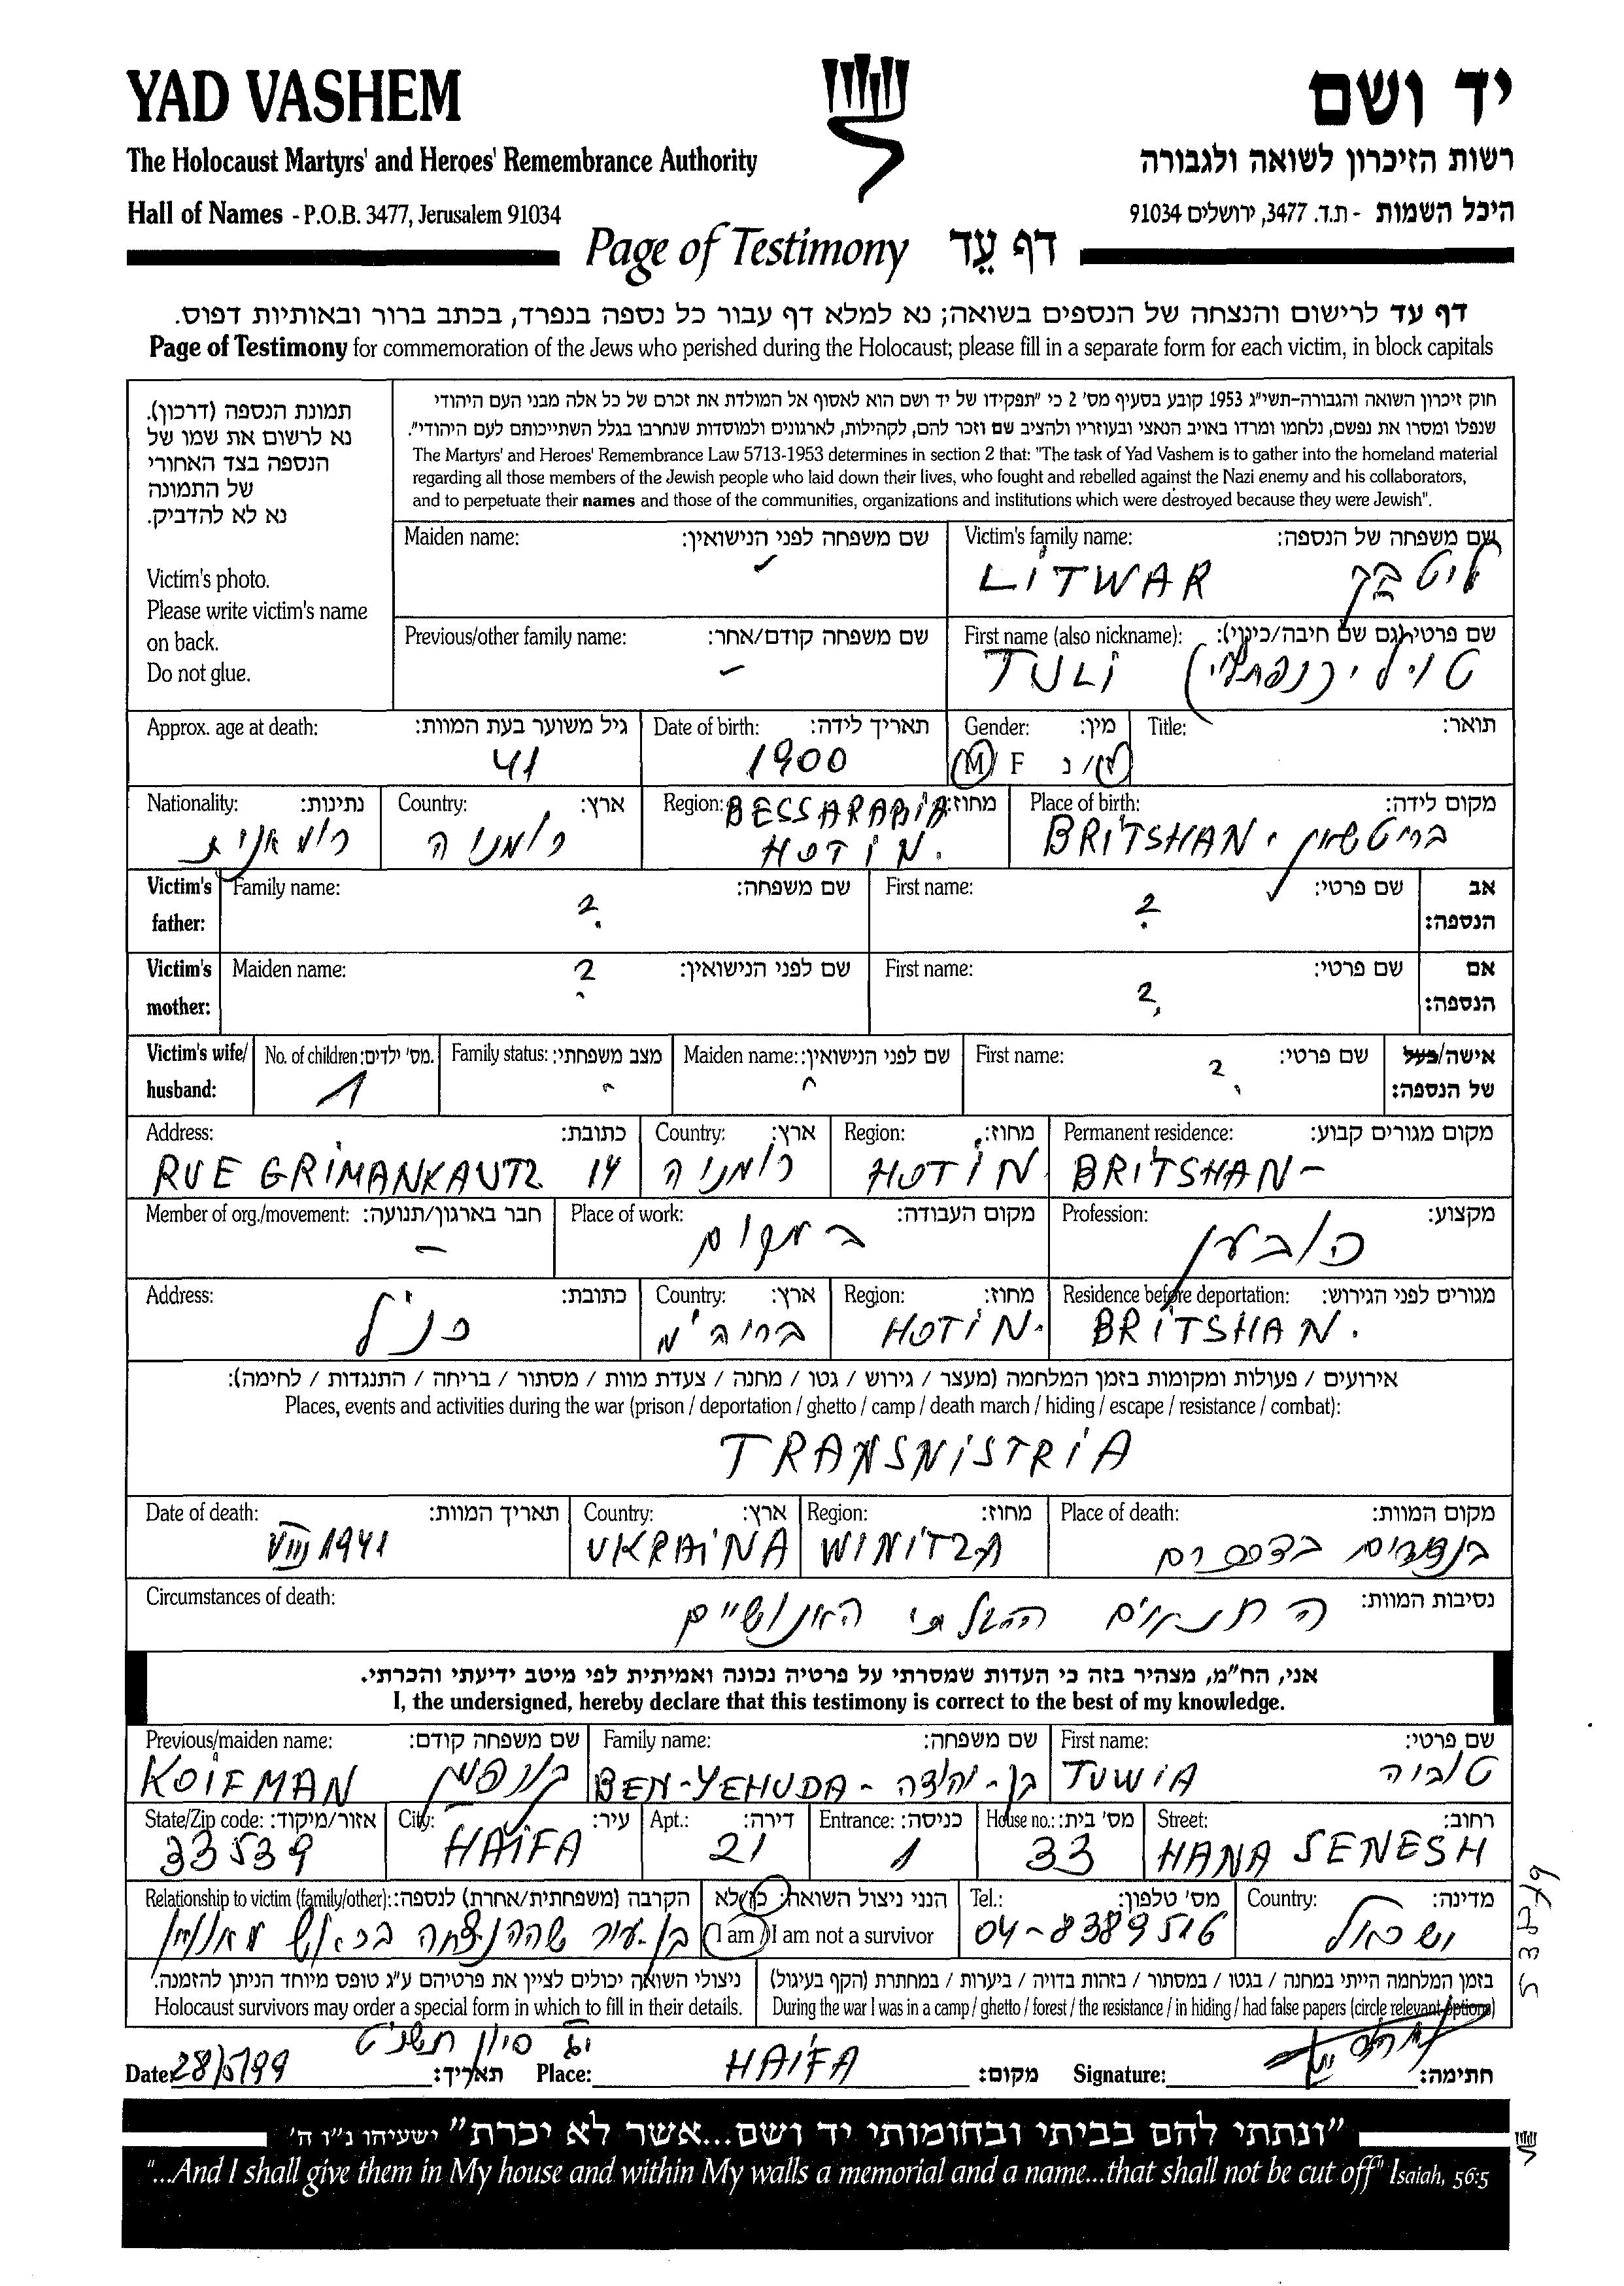 YAD VASHEM
יד ושם
The Holocaust Martyrs' and Heroes' Remembrance Authority
רשות הזיכרון לשואה ולגבורה
Hall of Names - P.O.B. 3477, Jerusalem 91034
היכל השמות - ת.ד. 3477, ירושלים 91034
Page of Testimony דף עֵד
דף עד לרישום והנצחה של הנספים בשואה; נא למלא דף עבור כל נספה בנפרד, בכתב ברור ובאותיות דפוס.
Page of Testimony for commemoration of the Jews who perished during the Holocaust; please fill in a separate form for each victim, in block capitals
תמונת הנספה (דרכון).
נא לרשום את שמו של
הנספה בצד האחורי
של התמונה
נא לא להדביק.
Victim's photo.
Please write victim's name
on back.
Do not glue.
חוק זיכרון השואה והגבורה-תשי"ג 1953 קובע בסעיף מס' 2 כי "תפקידו של יד ושם הוא לאסוף אל המולדת את זכרם של כל אלה מבני העם היהודי
שנפלו ומסרו את נפשם, נלחמו ומרדו באויב הנאצי ובעוזריו ולהציב שם וזכר להם, לקהילות, לארגונים ולמוסדות שנחרבו בגלל השתייכותם לעם היהודי".
The Martyrs' and Heroes' Remembrance Law 5713-1953 determines in section 2 that: "The task of Yad Vashem is to gather into the homeland material
regarding all those members of the Jewish people who laid down their lives, who fought and rebelled against the Nazi enemy and his collaborators,
and to perpetuate their names and those of the communities, organizations and institutions which were destroyed because they were Jewish".
Maiden name: שם משפחה לפני הנישואין:
Victim's family name: שם משפחה של הנספה:
LITWAR ליטבק
Previous/other family name: שם משפחה קודם/אחר:
First name (also nickname): שם פרטי (גם שם חיבה/כינוי):
TULI טולי (נפתלי)
Approx. age at death: גיל משוער בעת המוות:
41
Date of birth: תאריך לידה:
1900
Gender: מין:
M/ F ז/נ
Title: תואר:
Nationality: נתינות:
רומאנית
Country: ארץ:
רומניה
Region: מחוז:
BESSARABIA
HOTIN.
Place of birth: מקום לידה:
BRITSHAN. בריטשאן
Victim's father: Family name: שם משפחה: ?
First name: שם פרטי: ? אב הנספה:
Victim's mother: Maiden name: שם לפני הנישואין: ?
First name: שם פרטי: ? אם הנספה:
Victim's wife/ husband: No. of children: מס' ילדים: 1
Family status: מצב משפחתי:
Maiden name: שם לפני הנישואין:
First name: שם פרטי: ? אישה/בעל של הנספה:
Address: כתובת:
RUE GRIMANKAUTZ 14
Country: ארץ:
רומניה
Region: מחוז:
HOTIN
Permanent residence: מקום מגורים קבוע:
BRITSHAN-
Member of org./movement: חבר בארגון/תנועה:
Place of work: מקום העבודה:
במקום
Profession: מקצוע:
כובען
Address: כתובת:
כנ"ל
Country: ארץ:
בריה"מ
Region: מחוז:
HOTIN.
Residence before deportation: מגורים לפני הגירוש:
BRITSHAN.
אירועים / פעולות ומקומות בזמן המלחמה (מעצר / גירוש / גטו / מחנה / צעדת מוות / מסתור / בריחה / התנגדות / לחימה):
Places, events and activities during the war (prison / deportation / ghetto / camp / death march / hiding / escape / resistance / combat):
TRANSNISTRIA
Date of death: תאריך המוות:
VIII 1941
Country: ארץ:
UKRAINA
Region: מחוז:
WINITZA
Place of death: מקום המוות:
Circumstances of death: נסיבות המוות:
התנאים הבלתי האנושיים
אני, הח"מ, מצהיר בזה כי העדות שמסרתי על פרטיה נכונה ואמיתית לפי מיטב ידיעתי והכרתי.
I, the undersigned, hereby declare that this testimony is correct to the best of my knowledge.
Previous/maiden name: שם משפחה קודם:
KOIFMAN קויפמן
Family name: שם משפחה:
BEN-YEHUDA - בן-יהודה
First name: שם פרטי:
TUWIA טוביה
State/Zip code: אזור/מיקוד:
33539
City: עיר:
HAIFA
Apt.: דירה:
21
Entrance: כניסה:
1
House no.: מס' בית:
33
Street: רחוב:
HANA SENESH
Relationship to victim (family/other): הקרבה (משפחתית/אחרת) לנספה:
בן-עיר
הנני ניצול השואה: כן/לא
I am / I am not a survivor
Tel.: מס' טלפון:
04-8389516
Country: מדינה:
ישראל
ניצולי השואה יכולים לציין את פרטיהם ע"ג טופס מיוחד הניתן להזמנה.
Holocaust survivors may order a special form in which to fill in their details.
בזמן המלחמה הייתי במחנה / בגטו / במסתור / בזהות בדויה / ביערות / במחתרת (הקף בעיגול)
During the war I was in a camp / ghetto / forest / the resistance / in hiding / had false papers (circle relevant options)
סיון תשנ"ט
Date: 28/5/99 תאריך:
Place: HAIFA מקום:
Signature: חתימה:
"ונתתי להם בביתי ובחומותי יד ושם...אשר לא יכרת" ישעיהו נ"ו ה'
"...And I shall give them in My house and within My walls a memorial and a name...that shall not be cut off" Isaiah, 56:5